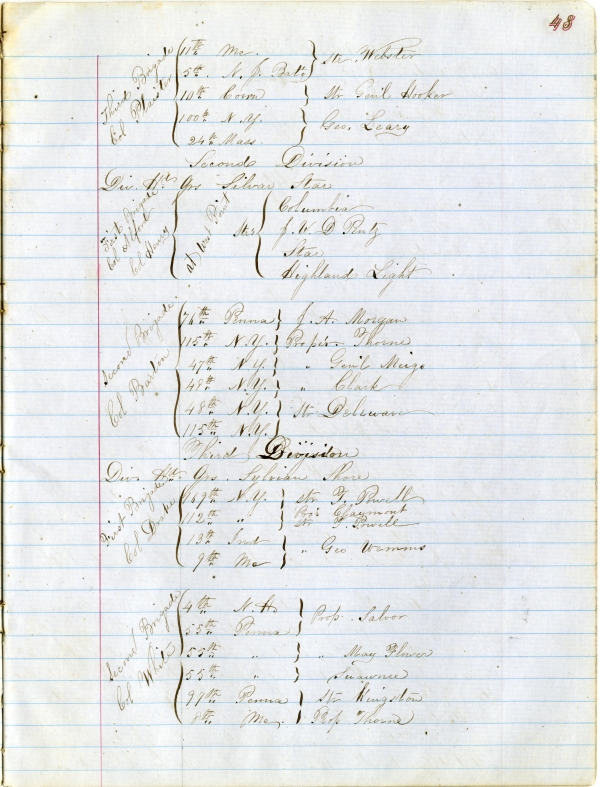 48
Third Brigade
Col Plaisted
11th Me. } Str. Webster
5th. N. J. Baty
10th Conn } Str. Genl. Hooker
100th N.Y. } Geo. Leary
24th Mass.
Second Division
Div. Hd. Qrs Silver Star
First Brigade
Col
Col Henry
at West Point
Strs
Columbia
J. W. D. Pentz
Star
Highland Light
Second Brigade.
Col Barton
76th Penna } J. A. Morgan
115th N.Y. } Prop'r. Thorne
47th N.Y. } " Genl. Meigs
48th N.Y. } " Clark
48th N.Y. } Str. Deleware
115th N.Y.
Third Division
Div. Hd. Qrs. Sylvian Shore
First Brigade
Col Drake
169th N.Y. } Str. T. Powell
112th " Pro. Claymont
Str. T. Powell
13th Ind } " Geo Weemms
9th Me
Second Brigade
Col White
4th N.H. } Prop. Salvor
55th Penna
55th " } " May Flower
55th " } Suwanee
97th Penna } Str Kingston
8th Me. } Prop Thorne